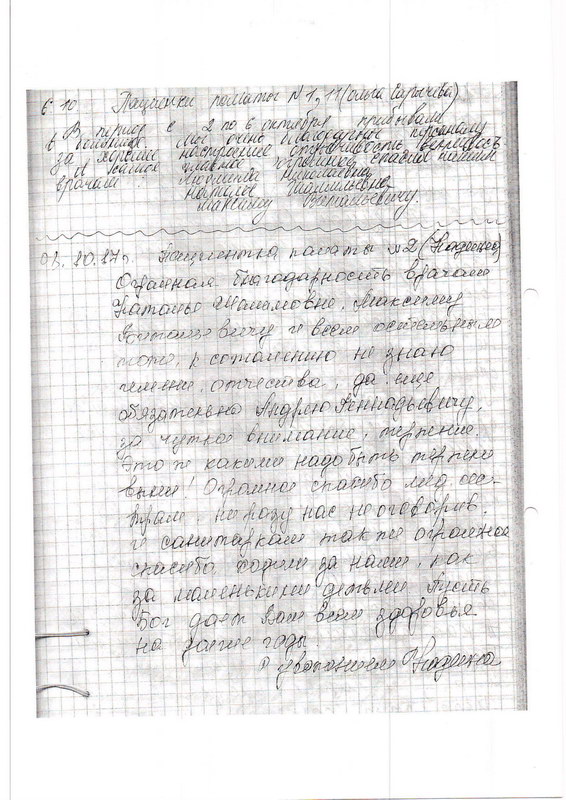 6.10 Пациентки палаты №1, 11 (Ольга
В период с 2 по 6 октября прибывали
в больнице. Мы очень благодарные персоналу
за хорошее настроение отзывчивость вежливость
И самое главное огромное спасибо нашим
врачам: Людмила Николаевна
Наталье Шамильевне
Максиму Витальевичу.
10.17г. Пациентка палаты №2 (Надежда)
Огромная благодарность врачам
Наталье Максиму
Витальевичу и всем остальным
тоже, к сожалению не знаю
имени, отчества, да еще
обязательно Андрею Геннадьевичу,
за чуткое внимание, терпение.
Это же какими надо быть терпели
выми! Огромное спасибо мед. сес-
трам, ни разу нас не оговорив.
и санитаркам так же огромное
спасибо ходили за нами, как
за маленькими детьми. Пусть
Бог дает Вам всем здоровья
на долгие годы.
С уважением Надежда